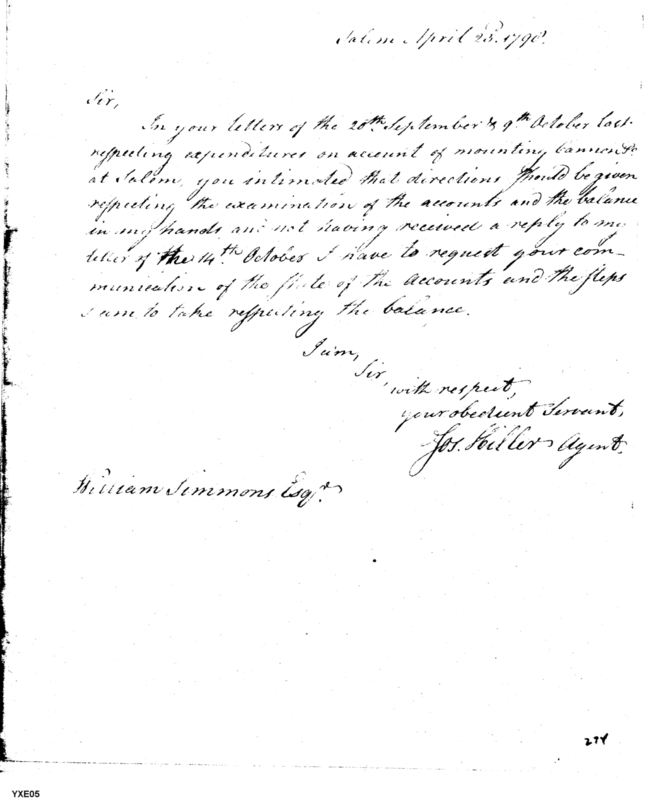 Salem April 23d. 1798.
Sir,
In your letters of the 20th. September & 9th. October last
respecting expenditures on account of mounting Cannon &c
at Salem, you intimated that directions should be given
respecting the examination of the accounts and the balance
in my hands and not having received a reply to my
letter of the 14th. October I have to request your com-
munication of the State of the Accounts and the steps
I am to take respecting the balance.
I am,
Sir,
with respect,
your obedient Servant,
Jos. Hiller Agent.
William Simmons Esqr.
274
YXE05